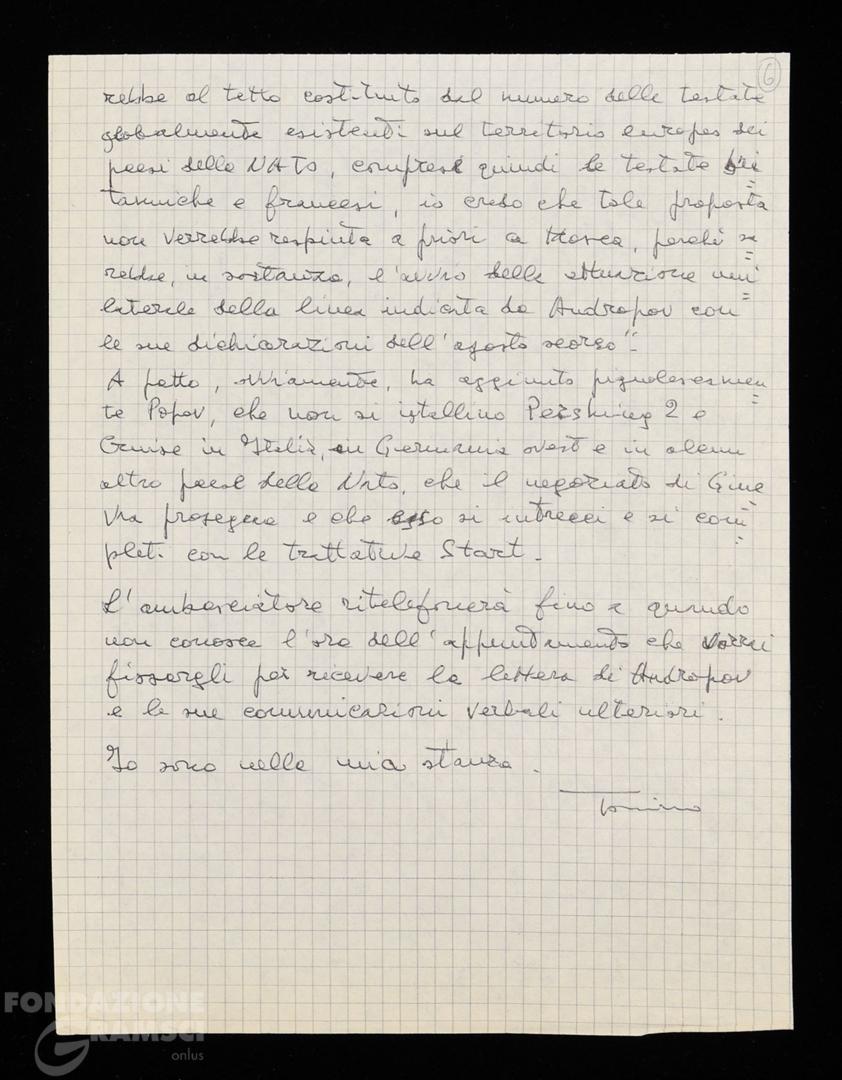 6
rebbe al tetto costituito dal numero delle testate
globalmente esistenti sul territorio europeo dei
paesi della NATO, comprese quindi le testate bri=
tanniche e francesi, io credo che tale proposta
non verrebbe respinta a priori a Mosca, perché sa=
rebbe, in sostanza, l'avvio della attuazione uni=
laterale della linea indicata da Andropov con
le sue dichiarazioni dell'agosto scorso".
A patto, ovviamente, ha aggiunto pignolescamen=
te Popov, che non si istallino Pershing 2 e
Cruise in Italia, in Germania ovest e in alcun
altro paese della Nato, che il negoziato di Gine=
vra prosegua e che esso si intrecci e si com=
pleti con le trattative Start.
L'ambasciatore ritelefonerà fino a quando
non conosce l'ora dell'appuntamento che vorrai
fissargli per ricevere la lettera di Andropov
e le sue comunicazioni verbali ulteriori.
Io sono nella mia stanza.
Tonino
FONDAZIONE
GRAMSCI
onlus